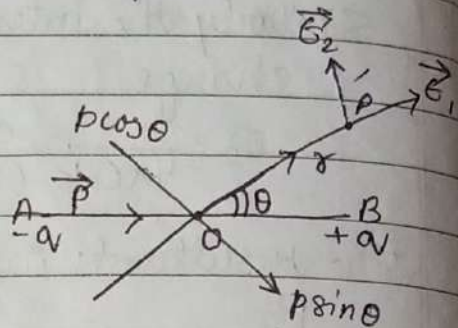 E₂
E₁
P
pcosθ
r
P
θ
A
B
-q
O
+q
psinθ